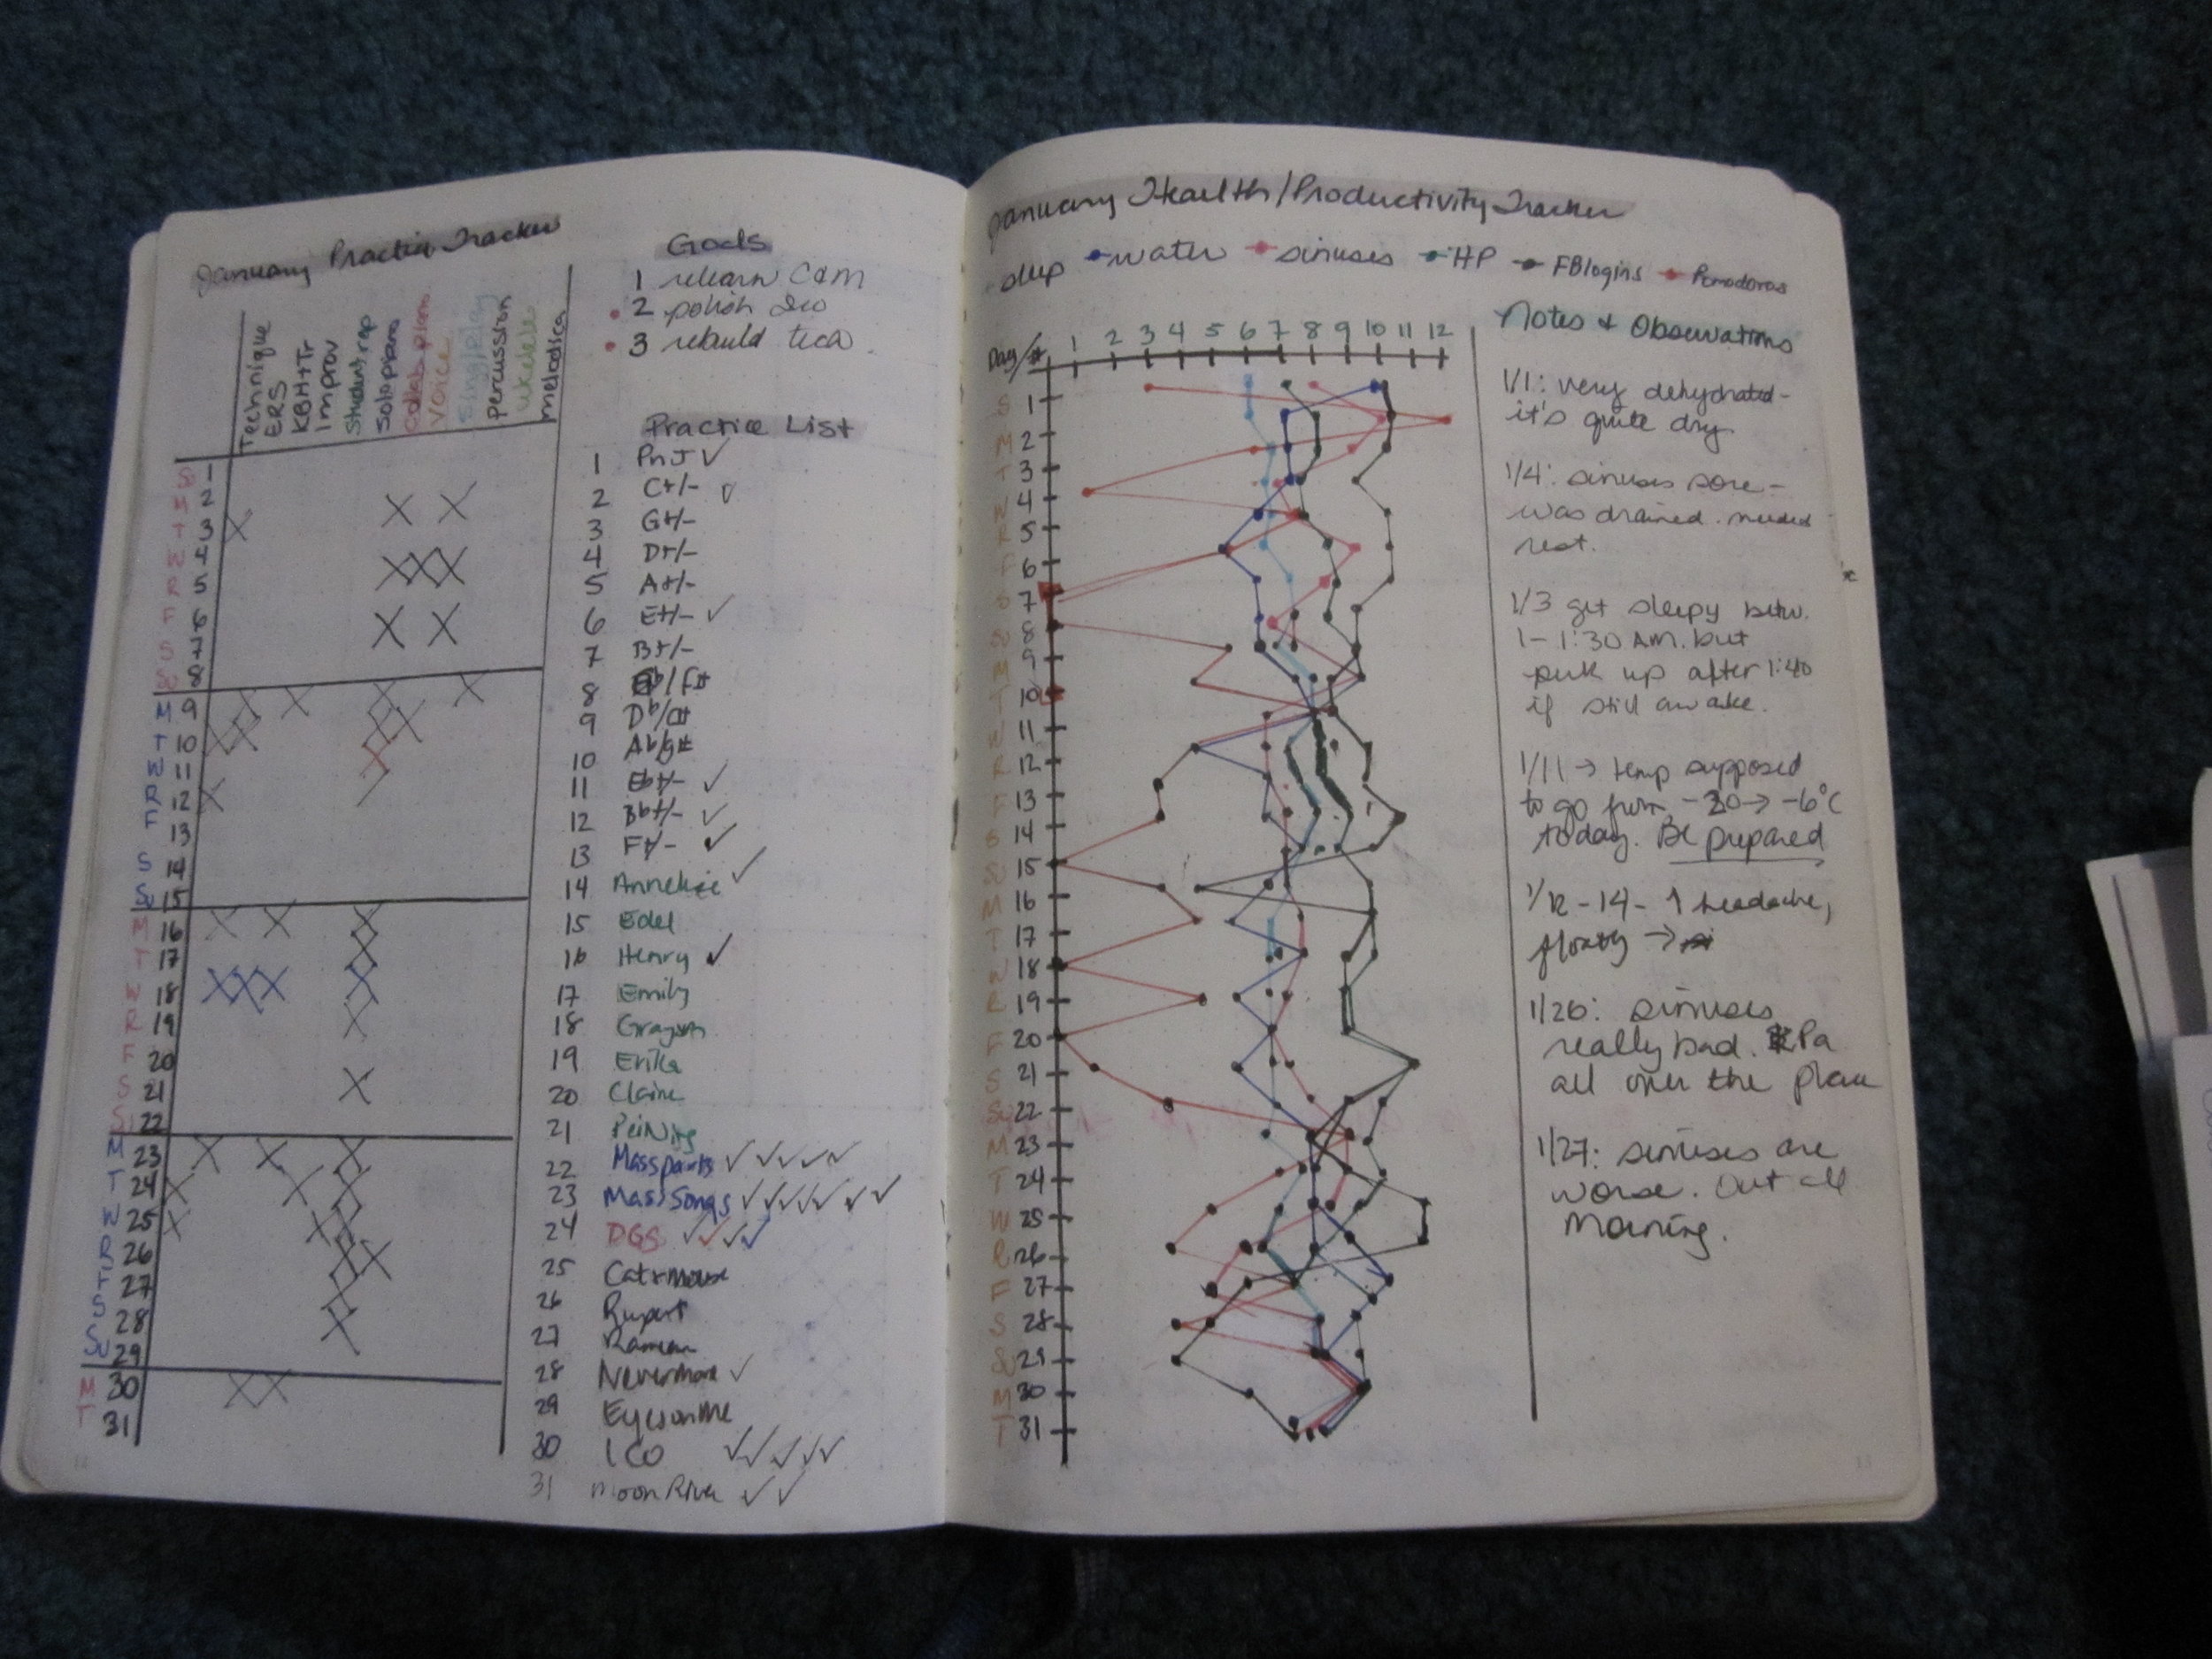 January Practice Tracker
Technique
ERS
KBH+Tr
Improv
Student rep
Solo piano
Collab piano
Voice
Sing/play
percussion
ukelele
melodica
S 1
M 2
T 3
W 4
R 5
F 6
S 7
Su 8
M 9
T 10
W 11
R 12
F 13
S 14
Su 15
M 16
T 17
W 18
R 19
F 20
S 21
Su 22
M 23
T 24
W 25
R 26
F 27
S 28
Su 29
M 30
T 31
Goals
1 relearn C&M
2 polish
3 rebuild tech.
Practice List
1 PnJ ✓
2 C+/- ✓
3 G+/-
4 D+/-
5 A+/-
6 E+/- ✓
7 B+/-
8 /F#
9 Db/C#
10 Ab/g#
11 Eb+/- ✓
12 Bb+/- ✓
13 F+/- ✓
14 Anneliese ✓
15 Edel
16 Henry ✓
17 Emily
18 Grayson
19 Erika
20 Claire
21 PeiNing
22 Mass parts ✓✓✓✓✓
23 Mass Songs ✓✓✓✓✓✓
24 DGS ✓✓✓✓
25 Cat + Mouse
26 Rupert
27 Rameau
28 Nevermore ✓
29 Eyes on Me
30 ICO ✓✓✓✓✓
31 Moon River ✓✓
January Health/Productivity Tracker
sleep water sinuses HP FBlogins Pomodoros
Day/# 1 2 3 4 5 6 7 8 9 10 11 12
S 1
M 2
T 3
W 4
R 5
F 6
S 7
Su 8
M 9
T 10
W 11
R 12
F 13
S 14
Su 15
M 16
T 17
W 18
R 19
F 20
S 21
Su 22
M 23
T 24
W 25
R 26
F 27
S 28
Su 29
M 30
T 31
Notes & Observations
1/1: very dehydrated-
it's quite dry.
1/4: sinuses sore-
was drained. needed
rest.
1/3 get sleepy betw.
1-1:30 AM. but
perk up after 1:40
if still awake.
1/11 → temp supposed
to go from -20 → -6°C
today. Be prepared
1/12-14- ↑ headache,
floaty →
1/26: sinuses
really bad. Pa
all over the place
1/27: sinuses are
worse. Out all
Morning.
13